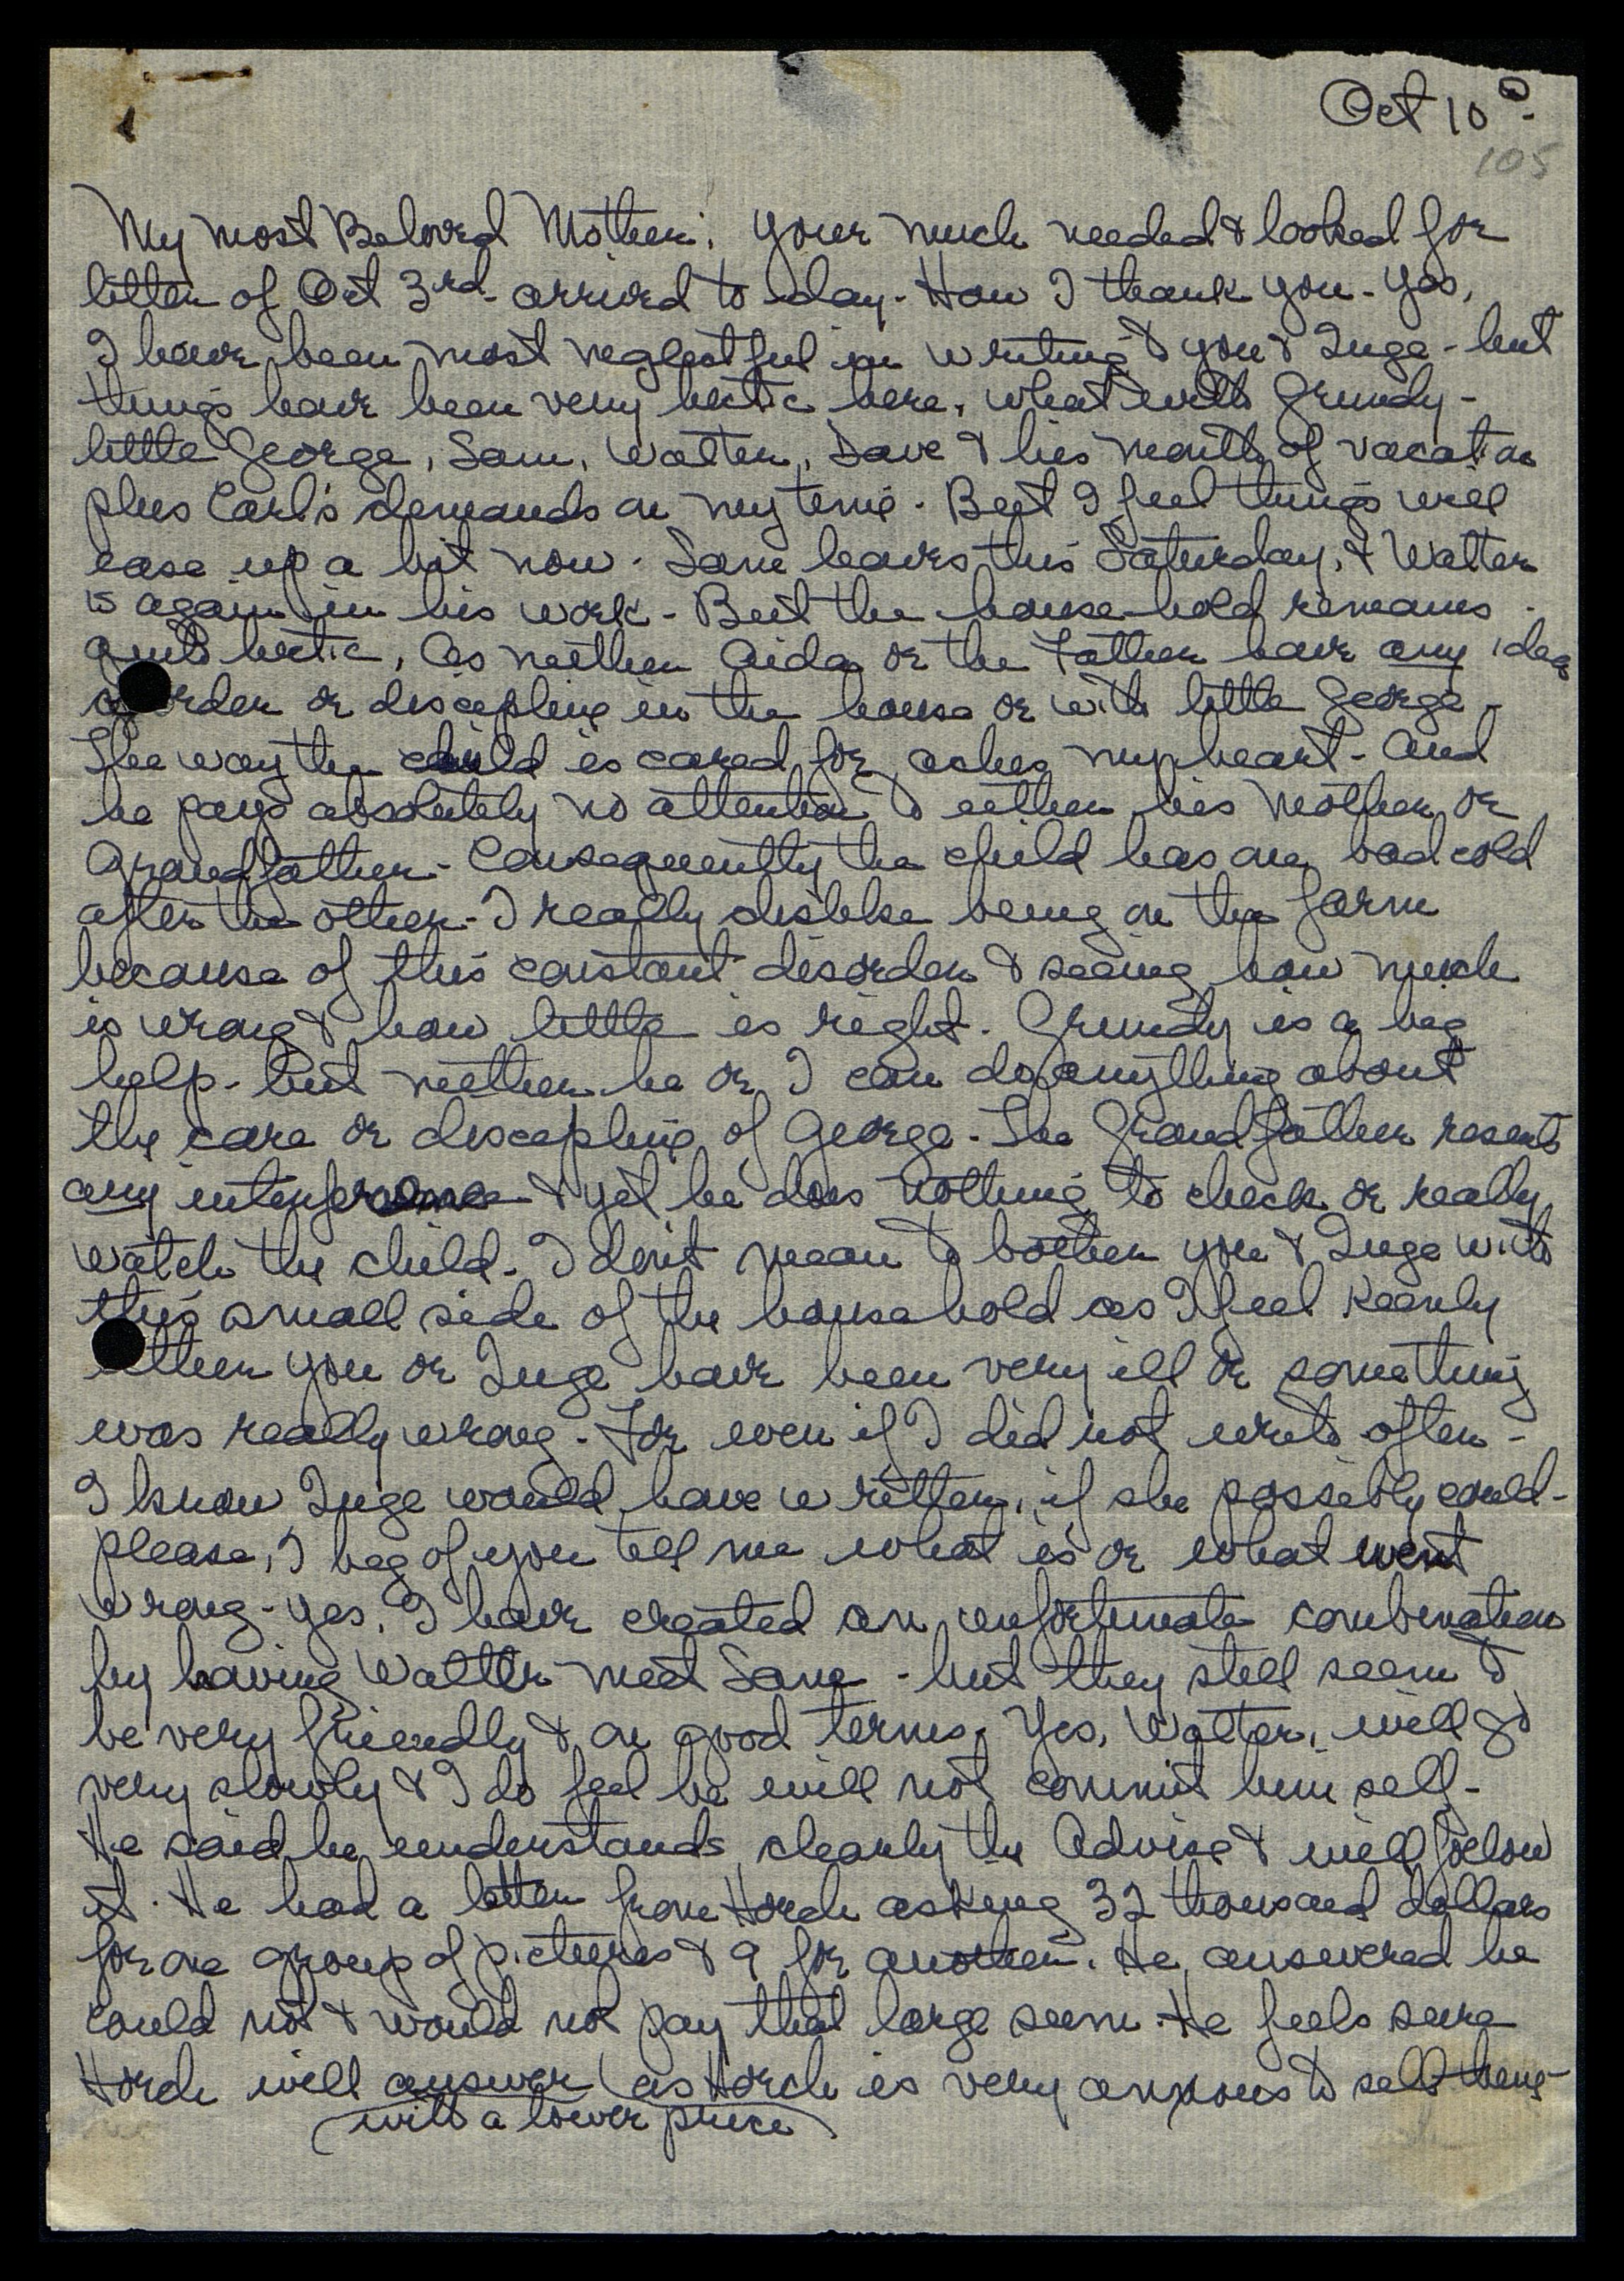 Oct 10
105
My most Beloved Mother; Your much needed & looked for
letter of Oct 3rd. arrived to-day. How I thank you. Yes,
I have been most neglectful in writing to you & Inge - but
things have been very hectic here, what with Grundy -
little George, Sam, Walter, Dave & his month of vacation
plus Carl's demands on my time. But I feel things will
ease up a bit now. Sam leaves this Saturday, & Walter
is again in his work - But the house-hold remains
quite hectic, as neither Aida or the Father have any idea
of order or discipline in the house or with little George -
The way the child is cared for aches my heart - And
he pays absolutely no attention to either his Mother or
Grandfather - Consequently the child has one bad cold
after the other - I really dislike being on the farm
because of this constant disorder & seeing how much
is wrong & how little is right. Grundy is a big
help - but neither he or I can do anything about
the care or discipline of George - The Grandfather resents
any interference & yet he does nothing to check or really
watch the child. I don't mean to bother you & Inge with
this small side of the household as I feel keenly
either you or Inge have been very ill or something
was really wrong - For even if I did not write often -
I know Inge would have written, if she possibly could -
please, I beg of you tell me what is or what went
wrong - Yes, I have created an unfortunate combination
by having Walter meet Sam - but they still seem to
be very friendly & on good terms. Yes, Walter, will go
very slowly & I do feel he will not commit himself -
He said he understands clearly the Advise & will follow
it. He had a letter from Horch asking 32 thousand dollars
for one group of pictures & 9 for another. He answered he
could not & would not pay that large sum. He feels sure
Horch will answer (as Horch is very anxious to sell them -
(with a lower price)